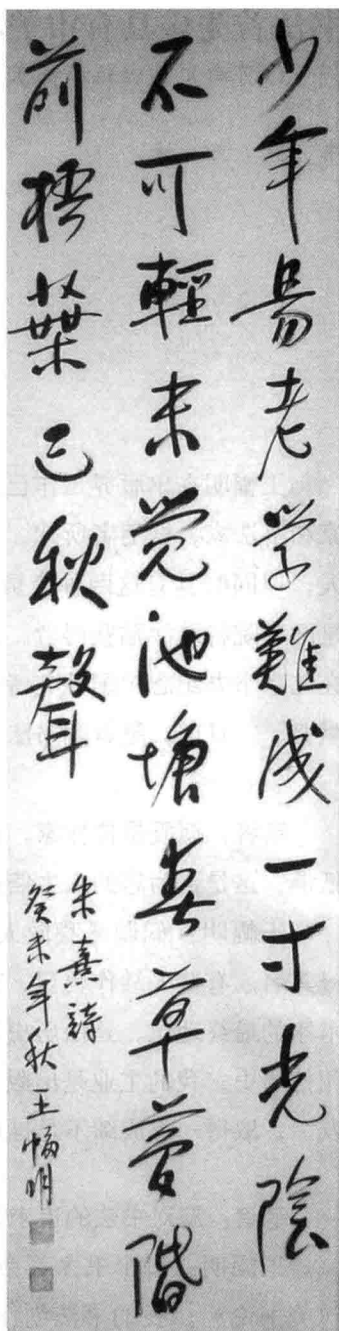 少年易老学難成一寸光陰
不可輕未觉池塘春草夢階
前梧葉已秋聲
朱熹詩
癸未年秋王幅明